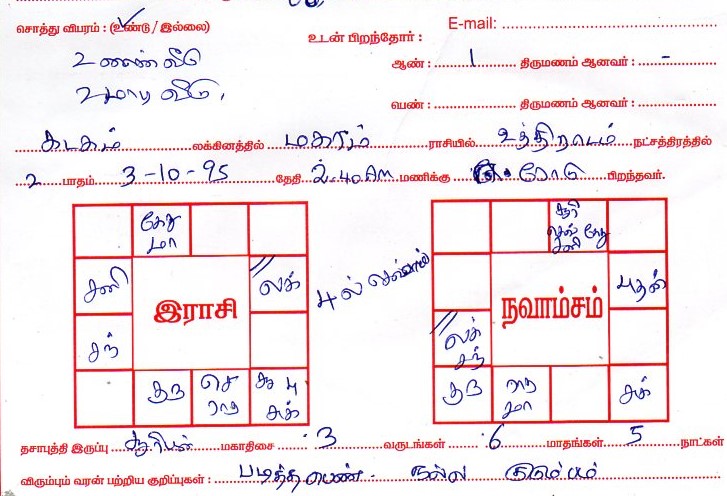 சொத்து விபரம் : (உண்டு / இல்லை)
உடன் பிறந்தோர் :
E-mail:
2 மண் வீடு
ஆண் : 1 திருமணம் ஆனவர் : -
2 மாடி வீடு.
பெண் : திருமணம் ஆனவர் :
கடகம் லக்கினத்தில் மகரம் ராசியில் உத்திராடம் நட்சத்திரத்தில்
2 பாதம் 3-10-95 தேதி 2.40 Am மணிக்கு ஈரோடு பிறந்தவர்.
கேது
மா
சனி
லக்
சந்
இராசி
குரு
செ
ராகு
சூ பு
சுக்
4ல் செவ்வாய்
சூரி
செவ் கேது
சனி
புதன்
லக்
சந்
நவாம்சம்
குரு
ராகு
மா
சுக்
தசாபுத்தி இருப்பு சூரியன் மகாதிசை 3 வருடங்கள் 6 மாதங்கள் 5 நாட்கள்
விரும்பும் வரன் பற்றிய குறிப்புகள் : படித்த பெண். நல்ல குடும்பம்